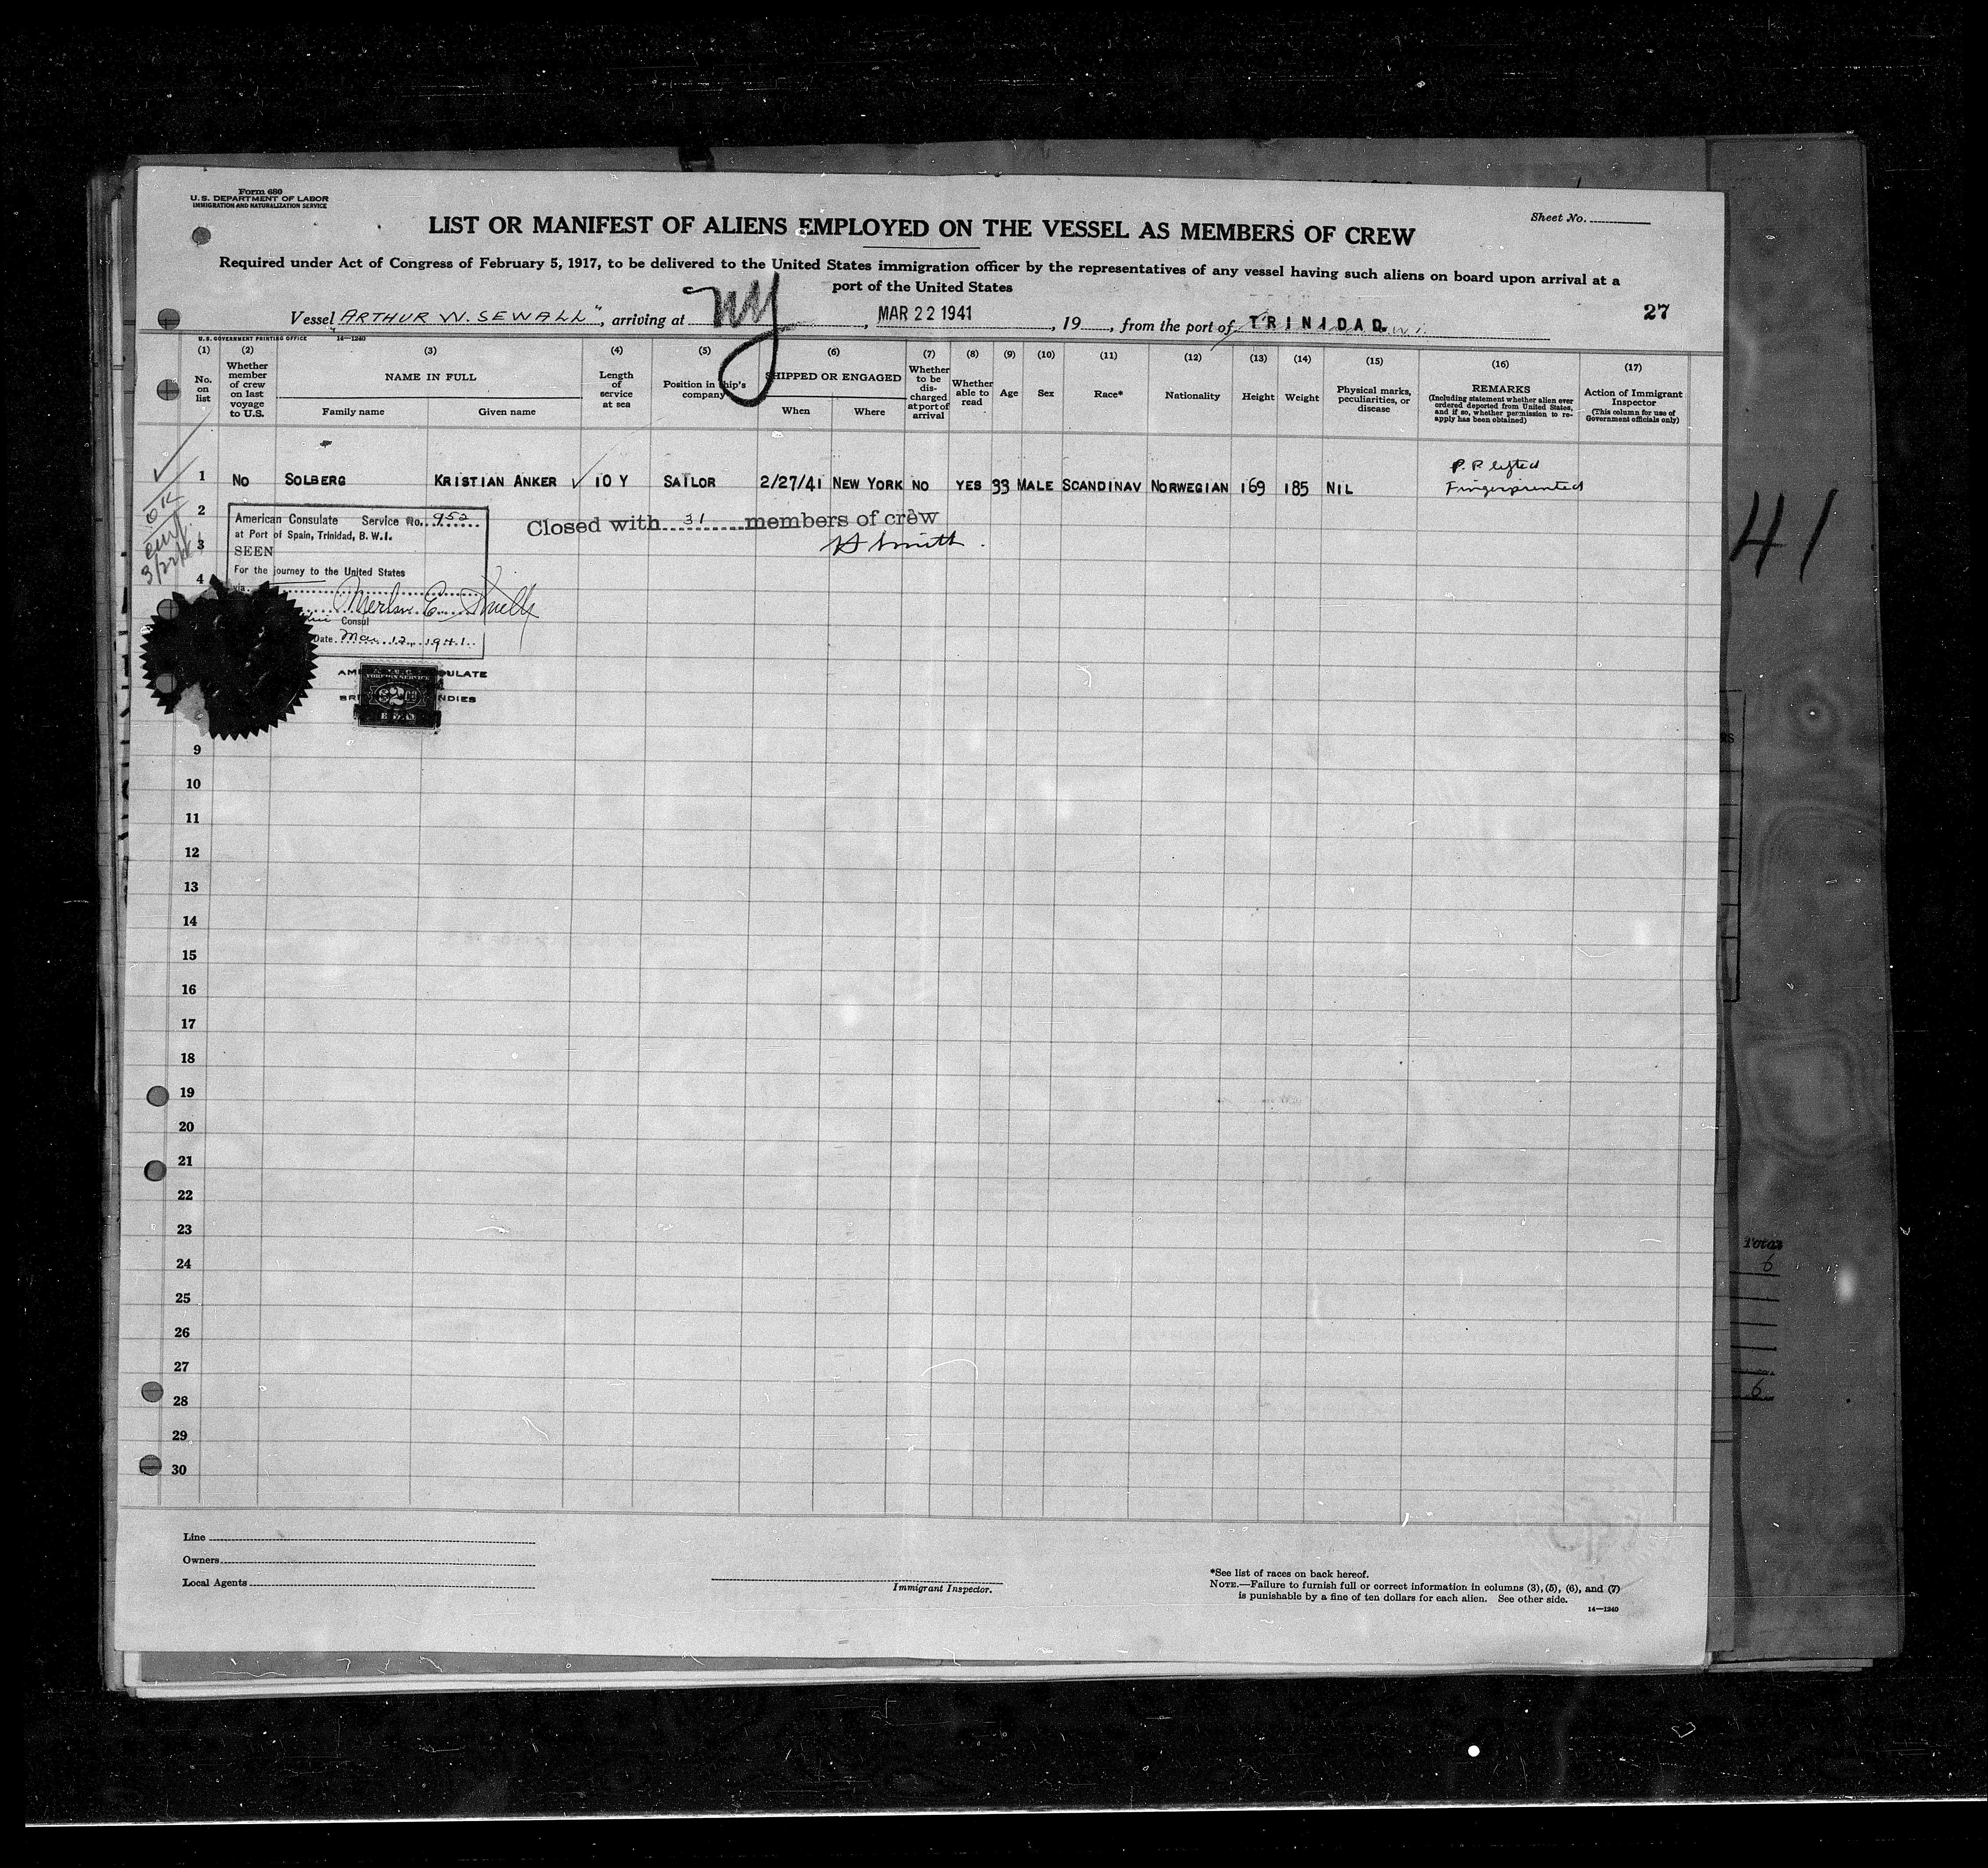 Form 680
U.S. DEPARTMENT OF LABOR
IMMIGRATION AND NATURALIZATION SERVICE
Sheet No.
LIST OR MANIFEST OF ALIENS EMPLOYED ON THE VESSEL AS MEMBERS OF CREW
Required under Act of Congress of February 5, 1917, to be delivered to the United States immigration officer by the representatives of any vessel having such aliens on board upon arrival at a
port of the United States
27
Vessel ARTHUR W. SEWALL", arriving at NY, MAR 22 1941, 19, from the port of TRINIDAD.
U.S. GOVERNMENT PRINTING OFFICE 14—1240
(1) (2) (3) (4) (5) (6) (7) (8) (9) (10) (11) (12) (13) (14) (15) (16) (17)
No. on list
Whether member of crew on last voyage to U.S.
NAME IN FULL
Family name Given name
Length of service at sea
Position in ship's company
SHIPPED OR ENGAGED
When Where
Whether to be discharged at port of arrival
Whether able to read
Age
Sex
Race*
Nationality
Height
Weight
Physical marks, peculiarities, or disease
REMARKS
(Including statement whether alien ever ordered deported from United States, and if so, whether permission to reapply has been obtained)
Action of Immigrant Inspector
(This column for use of Government officials only)
P.P. lifted
1 NO SOLBERG KRISTIAN ANKER 10 Y SAILOR 2/27/41 NEW YORK NO YES 33 MALE SCANDINAV NORWEGIAN 169 185 NIL Fingerprinted
OK
3/22/41
2
3
4
American Consulate Service No. 952
at Port of Spain, Trinidad, B.W.I.
SEEN
For the journey to the United States
via
Consul
Date Mar 12, 1941
Closed with 31 members of crew
H Smith
41
FOREIGN SERVICE
$2.00
9
10
11
12
13
14
15
16
17
18
19
20
21
22
23
24
25
26
27
28
29
30
Total
6
6
Line
Owners
Local Agents
Immigrant Inspector.
*See list of races on back hereof.
NOTE.—Failure to furnish full or correct information in columns (3), (5), (6), and (7)
is punishable by a fine of ten dollars for each alien. See other side.
14—1240